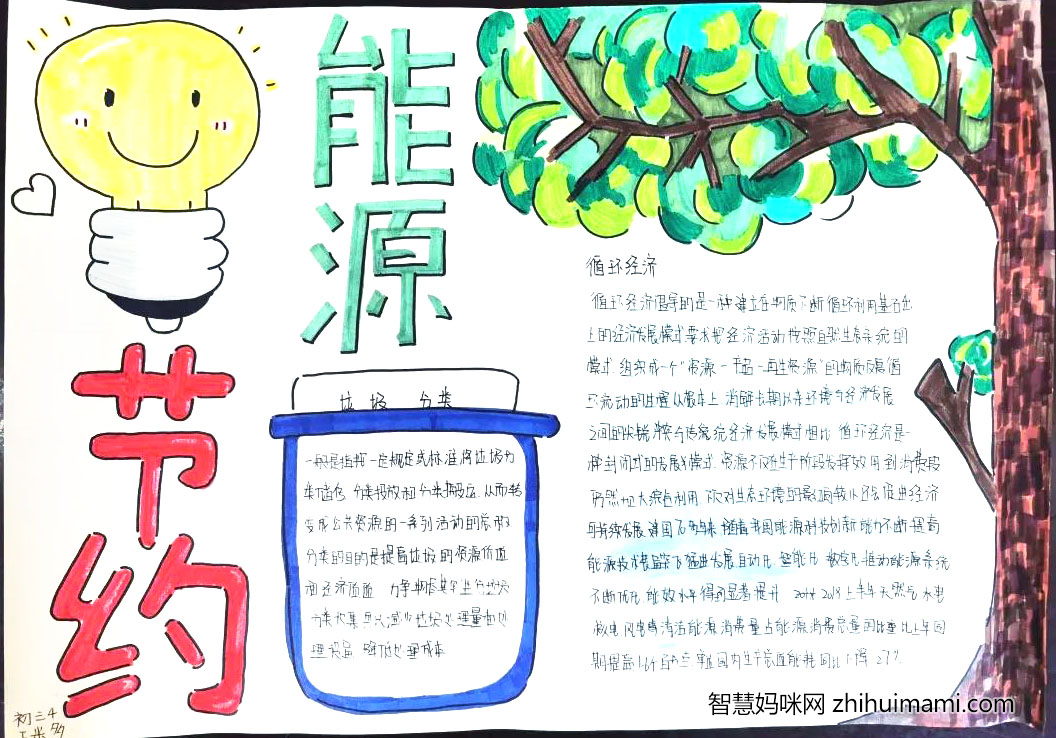 能源
节约
垃圾 分类
一般是指按一定规定或标准将垃圾分
类储存 分类投放和分类搬运 从而转
变成公共资源的一系列活动的总称
分类的目的是提高垃圾的资源价值
和经济价值 力争物尽其用
分类收集可以减少垃圾处理量和处
理设备 降低处理成本
循环经济
循环经济倡导的是一种建立在物质不断循环利用基础
上的经济发展模式 要求把经济活动按照自然生态系统的
模式 组织成一个"资源一产品一再生资源"的物质反复循
环流动的过程 从根本上消解长期以来环境与经济发展
之间的尖锐冲突 与传统经济发展模式相比 循环经济是一
种封闭式的发展模式 资源不仅在生产阶段发挥效用 到消费段
仍然加大综合利用
可持续发展 建国 随着我国能源科技创新能力不断提高
能源技术 发展 自动化 智能化 数字化 推动能源系统
不断优化 能效水平得到显著提升 2018上半年天然气 水电
核电 风电等清洁能源消费量占能源消费总量的比重比上年同
期提高1.6个百分点 单位国内生产总值能耗同比下降
初三4
智慧妈咪网 zhihuimami.com